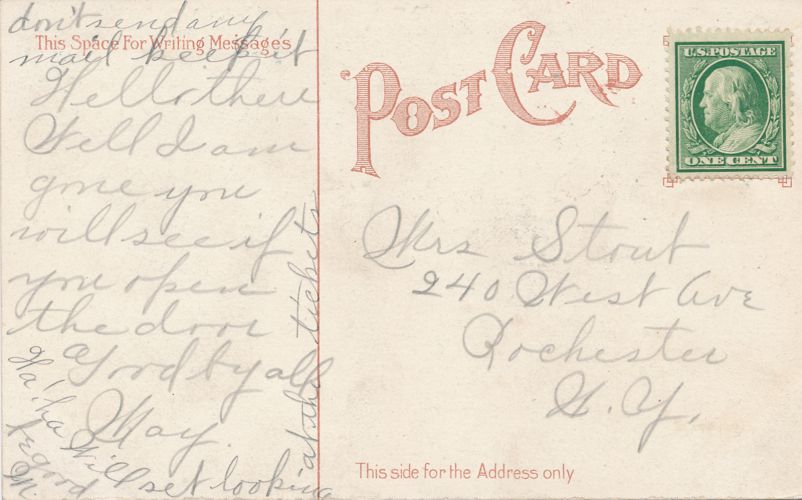 don't send any
This Space For Writing Messages
mail keep it
Hello there
Well I am
gone you
will see if
you open
the door
Good by all
May.
Ha! ha
be good
M.
Will set looking
at the tickets
POST CARD
U.S. POSTAGE
ONE CENT
Mrs Stout
240 West Ave
Rochester
N. Y.
This side for the Address only